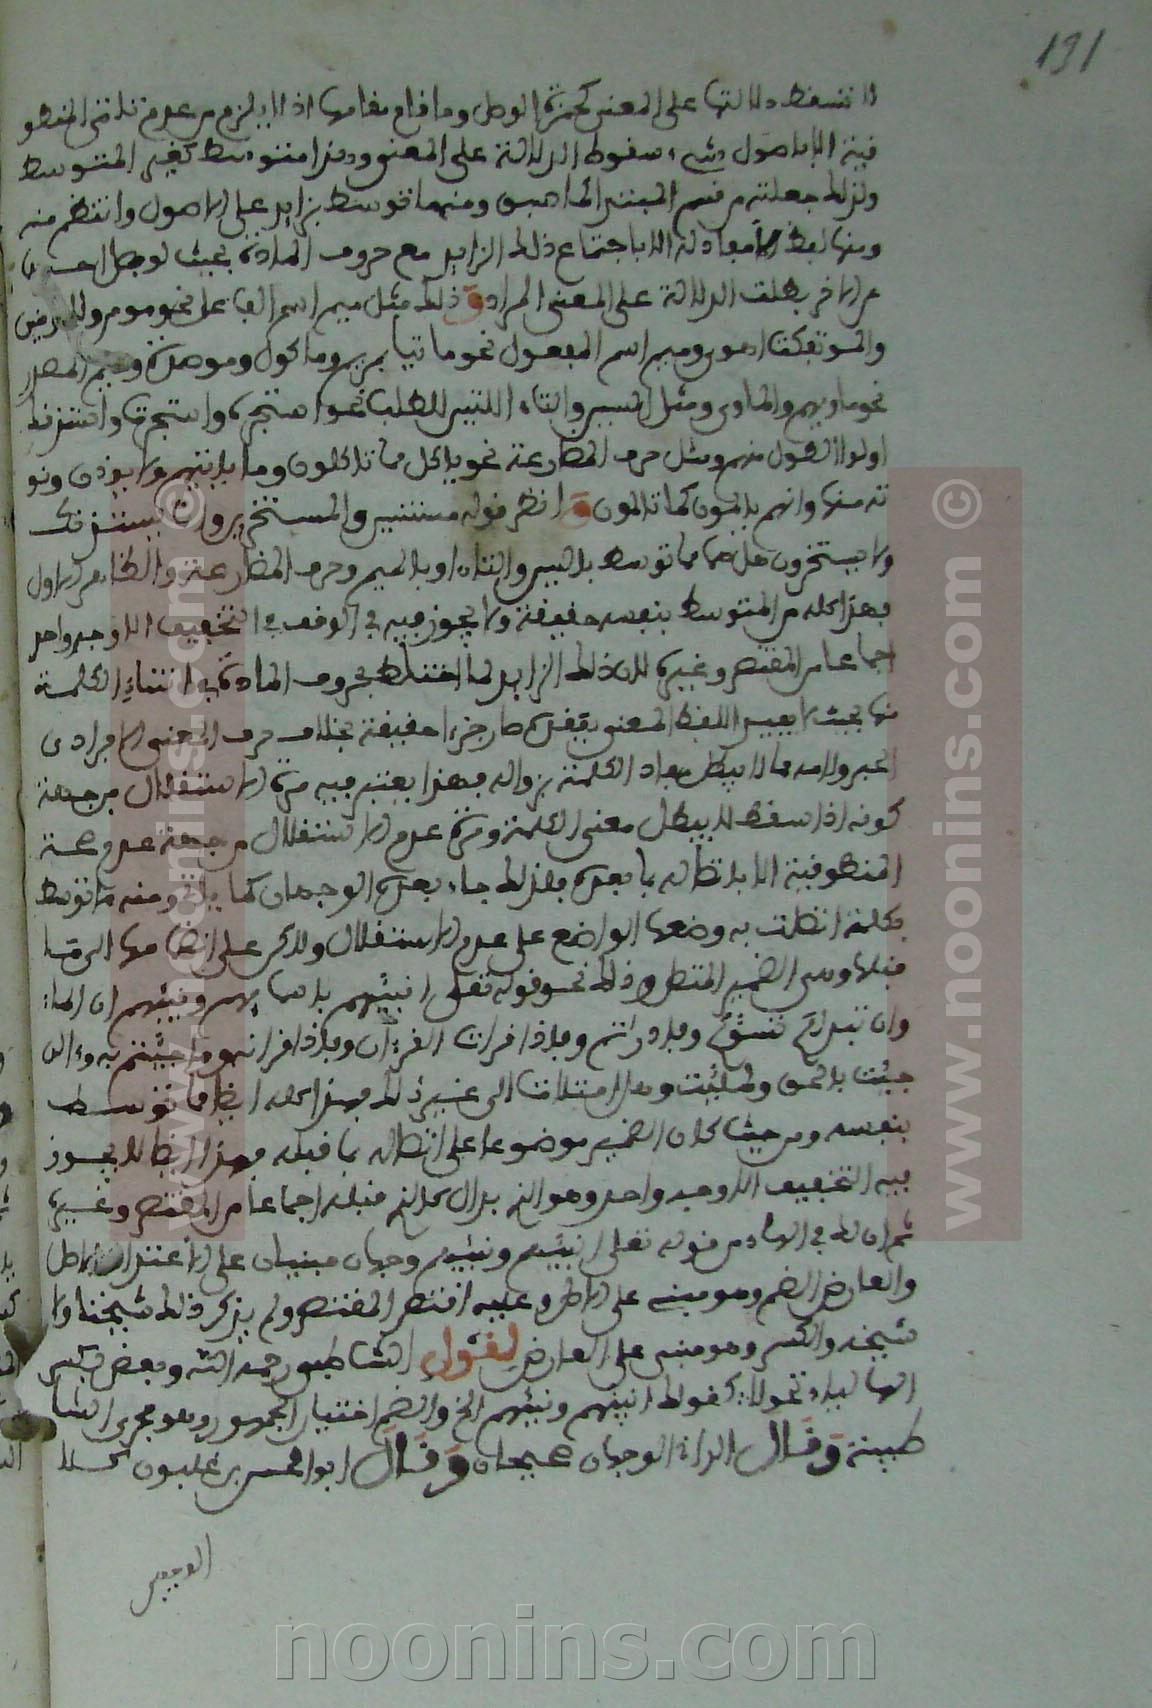 131
لا تسقط دلالتها على المعنى كهمزة الوصل وما قام مقامها اذ لا يلزم من عدم تلاقي المنطو
فية الا باصول شيء سقوط الدلالة على المعنى وهذا متوسط كغير المتوسط
ولذلك جعلته من قسم المبتدا الماضي ومنهما توسط بزايد على الاصول وانتظم منه
ومنها لفظ معا دلة الا باجتماع ذلك الزايد مع حروف المادة بحيث لو فصل احدهما
من الاخر بطلت الدلالة على المعنى المراد وذلك مثل ميم اسم الفاعل نحو مومن والمومنين
والموتفكت اهوى وميم اسم المفعول نحو ماتيا مريم وماكول وموصدة وميم المصدر
نحو ماويهم والماوى ومثل السين والتاء اللتين للطلب نحو استجره واستجرت واستئذنك
اولوا الطول منهم ومثل حرف المضارعة نحو ياكل مما تاكلون وما ياتيهم ولا يوذن ونو
ته منها وانهم يالمون كما تالمون انظر قوله مستنسين والمستخرين ولا يستئذنك
ولا يستخرون هل هما مما توسط بالسين والتاء او بالميم وحرف المضارعة والظاهر الاول
فهذا كله من المتوسط بنفسه حقيقة ولا يجوز فيه في الوقف في التخفيف الا وجه واحد
اجماعا من المقتصر وغيره لان ذلك الزايد لما اختلط بحروف المادة في انشاء الكلمة
منها بحيث لا يفيد اللفظ المعنى بفقده صار جزءا حقيقة بخلاف حرف المعنى الافرادى
الخبر ولامه مما لا يبطل مفاد الكلمة بزواله فهذا يعتبر فيه مرة الاستقلال من جهة
كونه اذا سقط لا يبطل معنى الكلمة ومرة عدم الاستقلال من جهة عدم صحة
المنطوقية الا باتصاله بما بعده فلذلك جاء بعده الوجهان كما ياتي ومنه ما توسط
بكلمة اتصلت به وضعها الواضع على عدم الاستقلال ولاكن على انضمامها الى ما
قبلها وهي الضمير المتصل وذلك نحو قوله تعلى انبئهم باسمايهم ونبئهم ان الماء
وان تبد لكم تسؤكم وفادراتم وفاذا قرات القرءان وفاذا قرانه وما جئتم به والان
جئت بالحق ولملئت وهل امتلات الى غير ذلك فهذا كله ايضا مما توسط
بنفسه ومن حيث كان الضمير موضوعا على اتصاله بما قبله فهذا ايضا لا يجوز
فيه التخفيف الا وجه واحد وهو الذي بدال كالذي قبله اجماعا من المقتصر وغيره
ثم ان لك في الهاء من قوله تعلى انبئهم ونبئهم وجهان مبنيان على الاعتداد بالاصل
والعارض الضم وهو مبني على الاصل وعليه اقتصر المقتصر ولم يذكر ذلك شيخنا ولا
شيخه والكسر وهو مبني على العارض لقول الشاطبي رحمه الله وبعض بكسر
الها لياء تحولا كقولك انبئهم ونبئهم الخ والضم اختيار الجمهور وهو مجرى الشا
طبية وقال الداني الوجهان صحيحان وقال ابو الحسن بن غلبون كلا
الوجهين
www.noonins.com ©
www.noonins.com ©
noonins.com